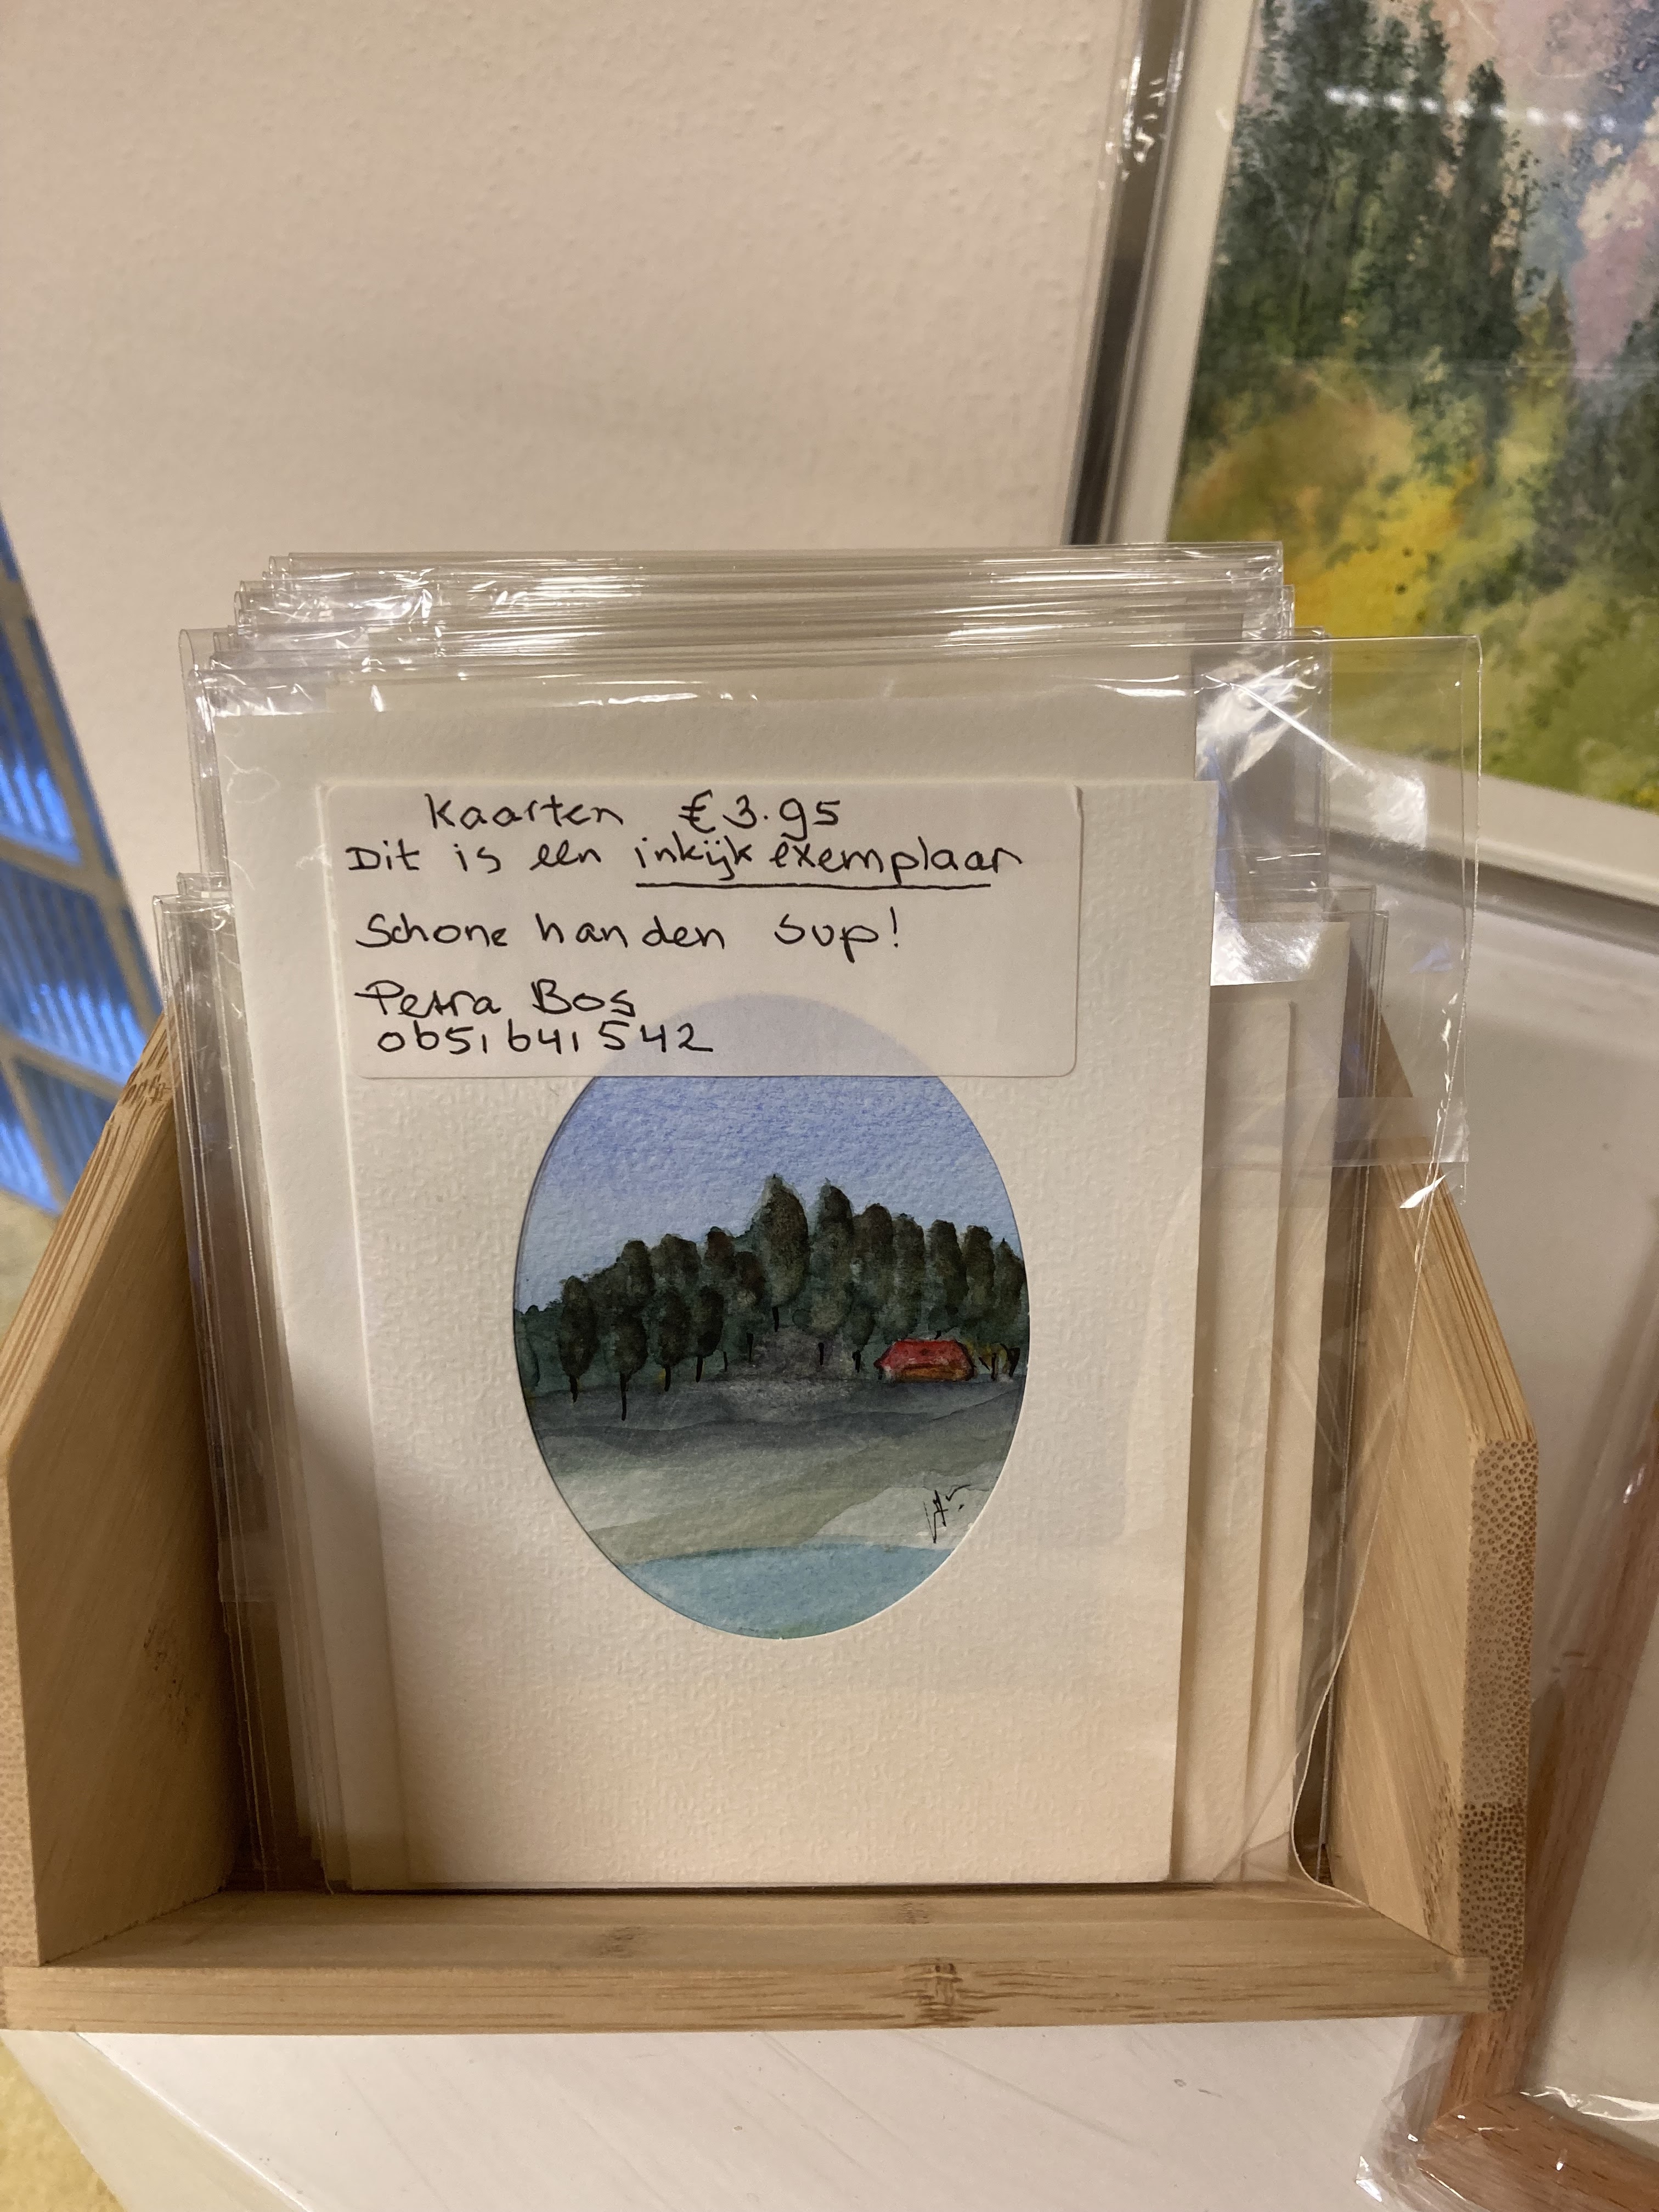 Kaarten €3.95
Dit is een inkijk exemplaar
Schone handen svp!
Petra Bos
0651641542